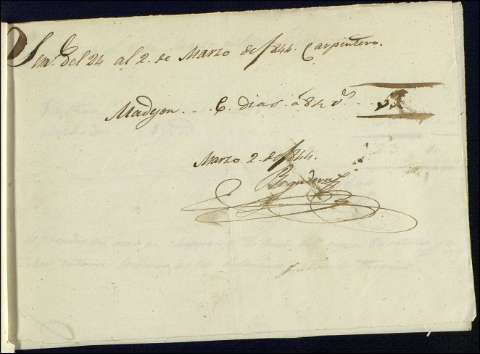 Smª del 24 al 2. de Marzo de 1844. Carpintero.
Madyen . . 6. dias a 8½ rˢ . . 51
Marzo 2. de 1844.